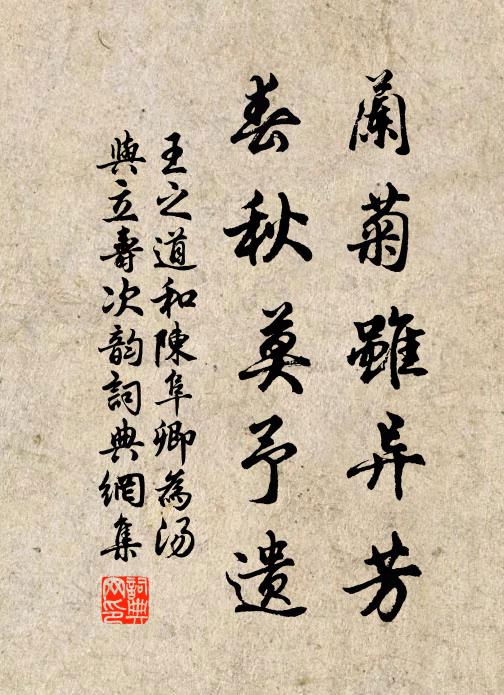 蘭菊雖异芳
春秋莫予遺
王之道和陳阜卿為湯
與立壽次韵詞典網集
詞典网印